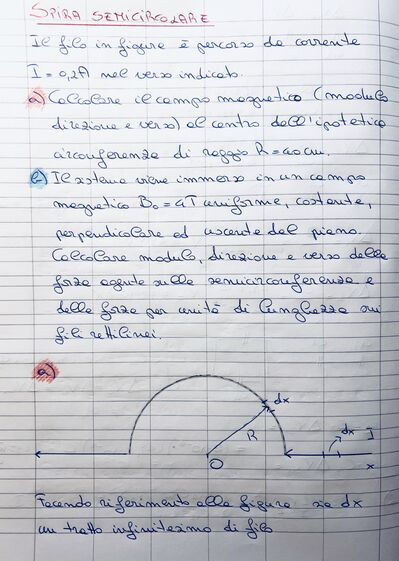 SPIRA SEMICIRCOLARE
Il filo in figura è percorso da corrente
I = 0,2A nel verso indicato.
a) Calcolare il campo magnetico (modulo
direzione e verso) al centro dell'ipotetica
circonferenza di raggio R = 20 cm.
b) Il sistema viene immerso in un campo
magnetico B₀ = 4T uniforme, costante,
perpendicolare ed uscente dal piano.
Calcolare modulo, direzione e verso della
forza agente sulla semicirconferenza e
della forza per unità di lunghezza sui
fili rettilinei.
a)
dx
R
dx I
O
x
Facendo riferimento alla figura sia dx
un tratto infinitesimo di filo